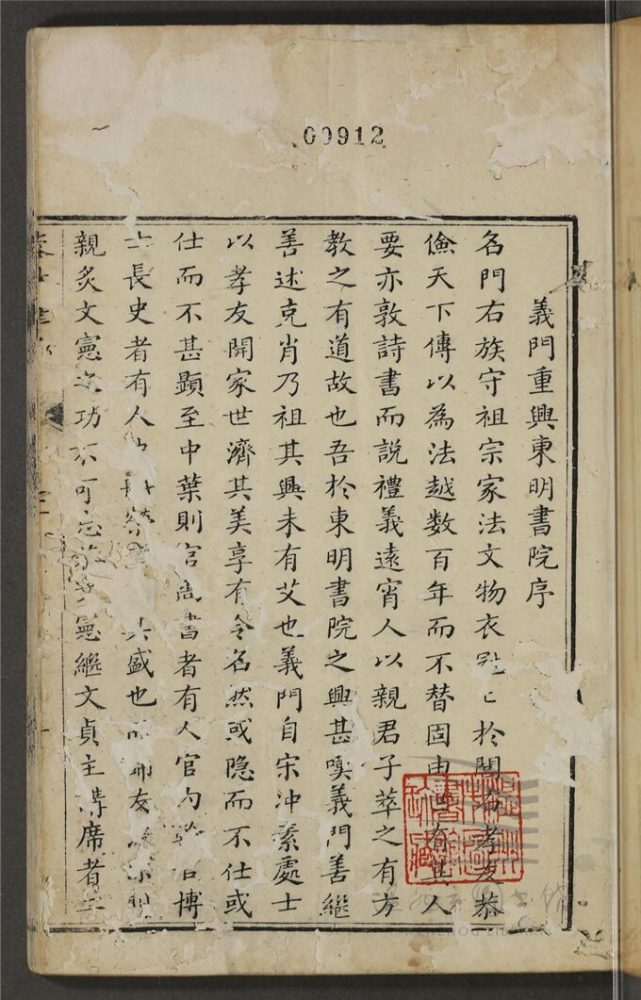 00912
義門重興東明書院序
名門右族守祖宗家法文物衣 於 孝友恭
儉天下傳以為法越数百年而不替固由 人
要亦敦詩書而說禮義遠宵人以親君子萃之有方
教之有道故也吾於東明書院之興甚嘆義門善繼
善述克肖乃祖其興未有艾也義門自宋冲素處士
以孝友開家世濟其美享有令名然或隐而不仕或
仕而不甚顯至中葉則官尚書者有人官 博
士長史者有人 盛也 師友
親炙文憲之功不可忘 憲繼文貞主講席者